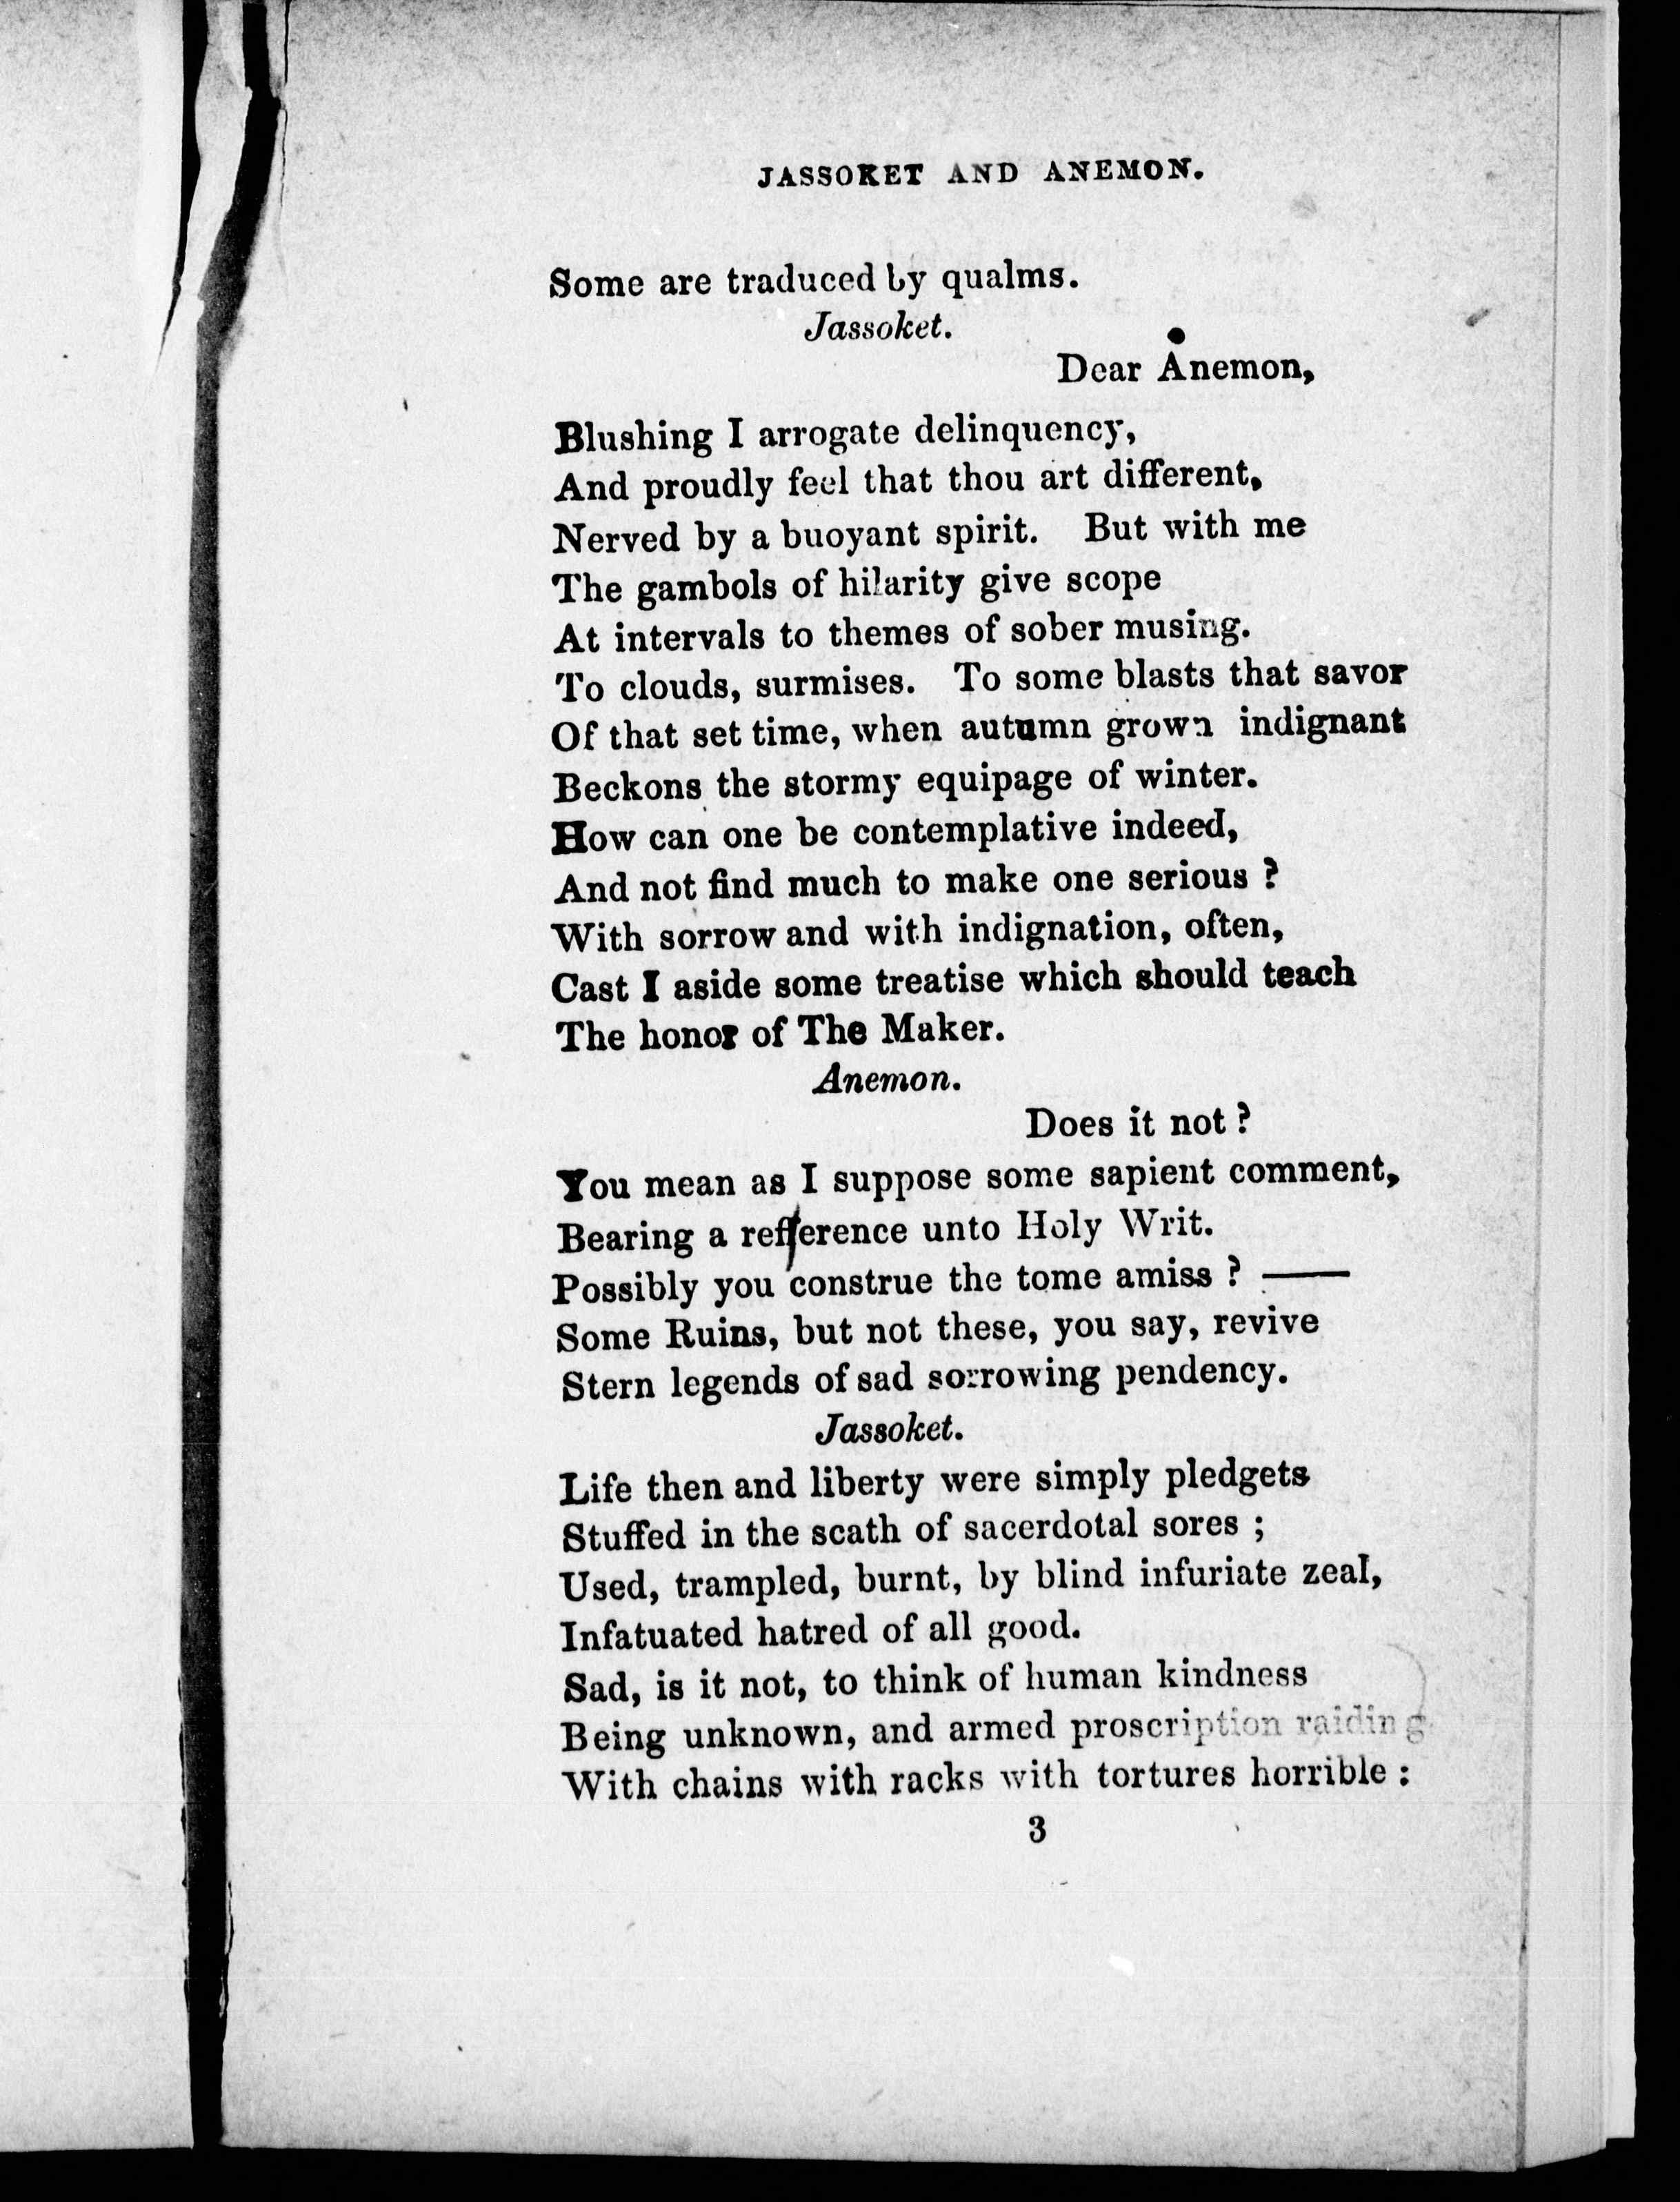 JASSOKET AND ANEMON.
Some are traduced by qualms.
Jassoket.
Dear Anemon,
Blushing I arrogate delinquency,
And proudly feel that thou art different,
Nerved by a buoyant spirit. But with me
The gambols of hilarity give scope
At intervals to themes of sober musing.
To clouds, surmises. To some blasts that savor
Of that set time, when autumn grown indignant
Beckons the stormy equipage of winter.
How can one be contemplative indeed,
And not find much to make one serious ?
With sorrow and with indignation, often,
Cast I aside some treatise which should teach
The honor of The Maker.
Anemon.
Does it not ?
You mean as I suppose some sapient comment,
Bearing a refference unto Holy Writ.
Possibly you construe the tome amiss ? ——
Some Ruins, but not these, you say, revive
Stern legends of sad sorrowing pendency.
Jassoket.
Life then and liberty were simply pledgets
Stuffed in the scath of sacerdotal sores ;
Used, trampled, burnt, by blind infuriate zeal,
Infatuated hatred of all good.
Sad, is it not, to think of human kindness
Being unknown, and armed proscription raiding
With chains with racks with tortures horrible :
3